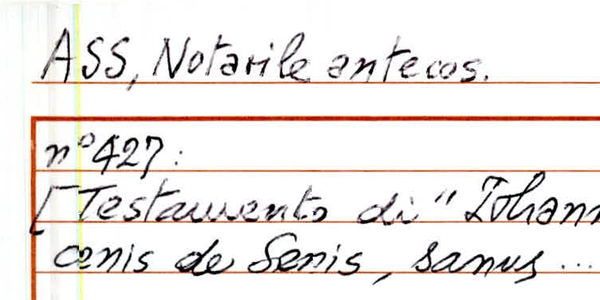 ASS, Notarile antecos.
n° 427:
[Testamento di "Iohann
cenis de Senis, sanus ...